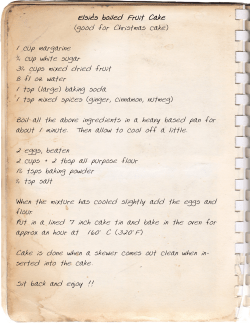 Elsie's boiled Fruit Cake
(good for Christmas cake)
1 cup margarine
¾ cup white sugar
3¾ cups mixed dried fruit
8 fl oz water
1 tsp (large) baking soda
1 tsp mixed spices (ginger, cinnamon, nutmeg)
Boil all the above ingredients in a heavy based pan for
about 1 minute. Then allow to cool off a little.
2 eggs, beaten
2 cups + 2 tbsp all purpose flour
1½ tsps baking powder
½ tsp salt
When the mixture has cooled slightly add the eggs and
flour
Put in a lined 7 inch cake tin and bake in the oven for
approx an hour at 160° C (320°F)
Cake is done when a skewer comes out clean when in-
serted into the cake.
Sit back and enjoy !!